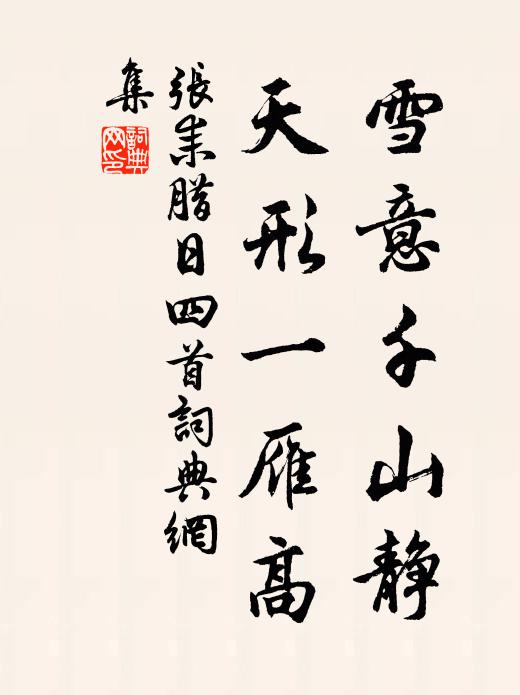 雪意千山静
天形一雁高
張耒腊日四首詞典網
集
詞典網印